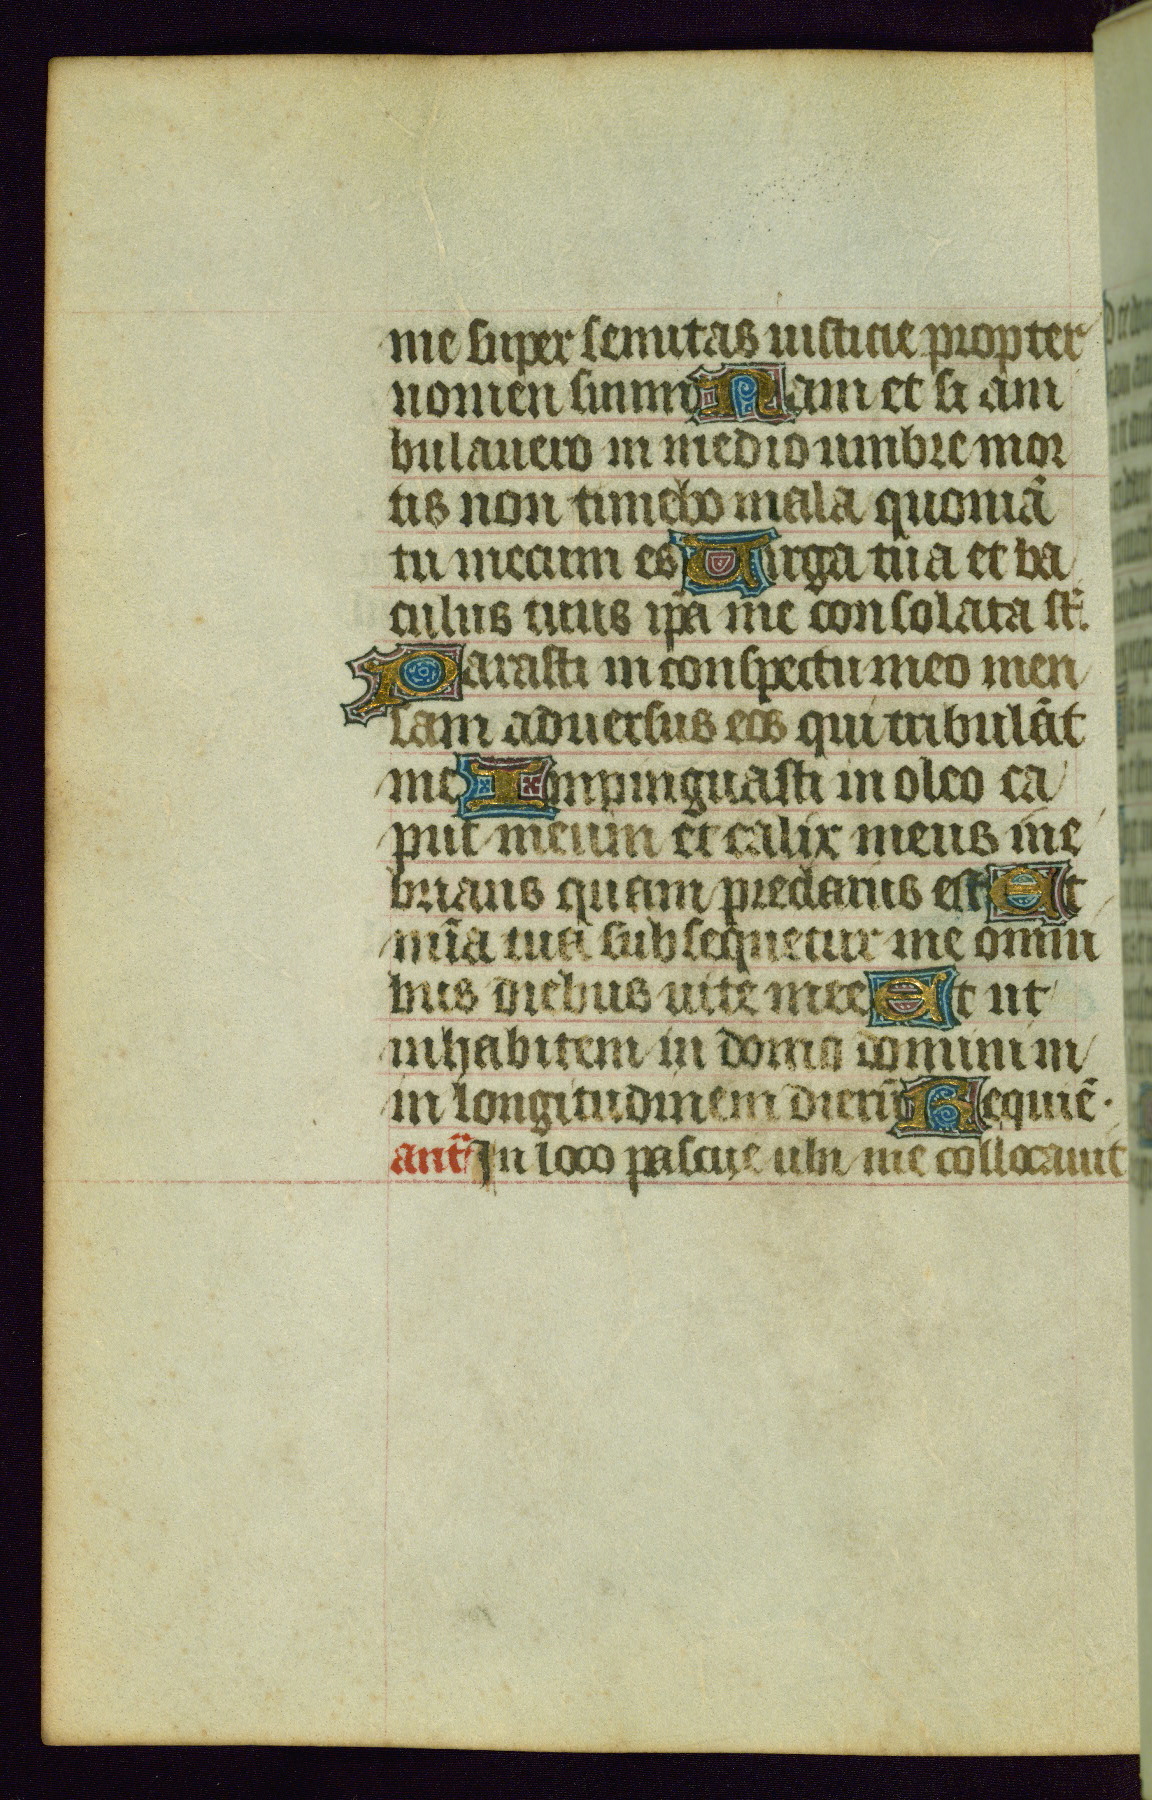 me super semitas iusticie propter
nomen suum Nam et si am
bulauero in medio umbre mor
tis non timebo mala quoniā
tu mecum es Uirga tua et ba
culus tuus ip̄a me consolata st̄.
Parasti in conspectu meo men
sam aduersus eos qui tribulāt
me Inpinguasti in oleo ca
put meum et calix meus ine
brians quam preclarus est Et
mīa tua subsequetur me omni
bus diebus uite mee Et ut
inhabitem in domo domini in
in longitudinem dierū Requiē.
ant̄ In loco pascue ubi me collocauit